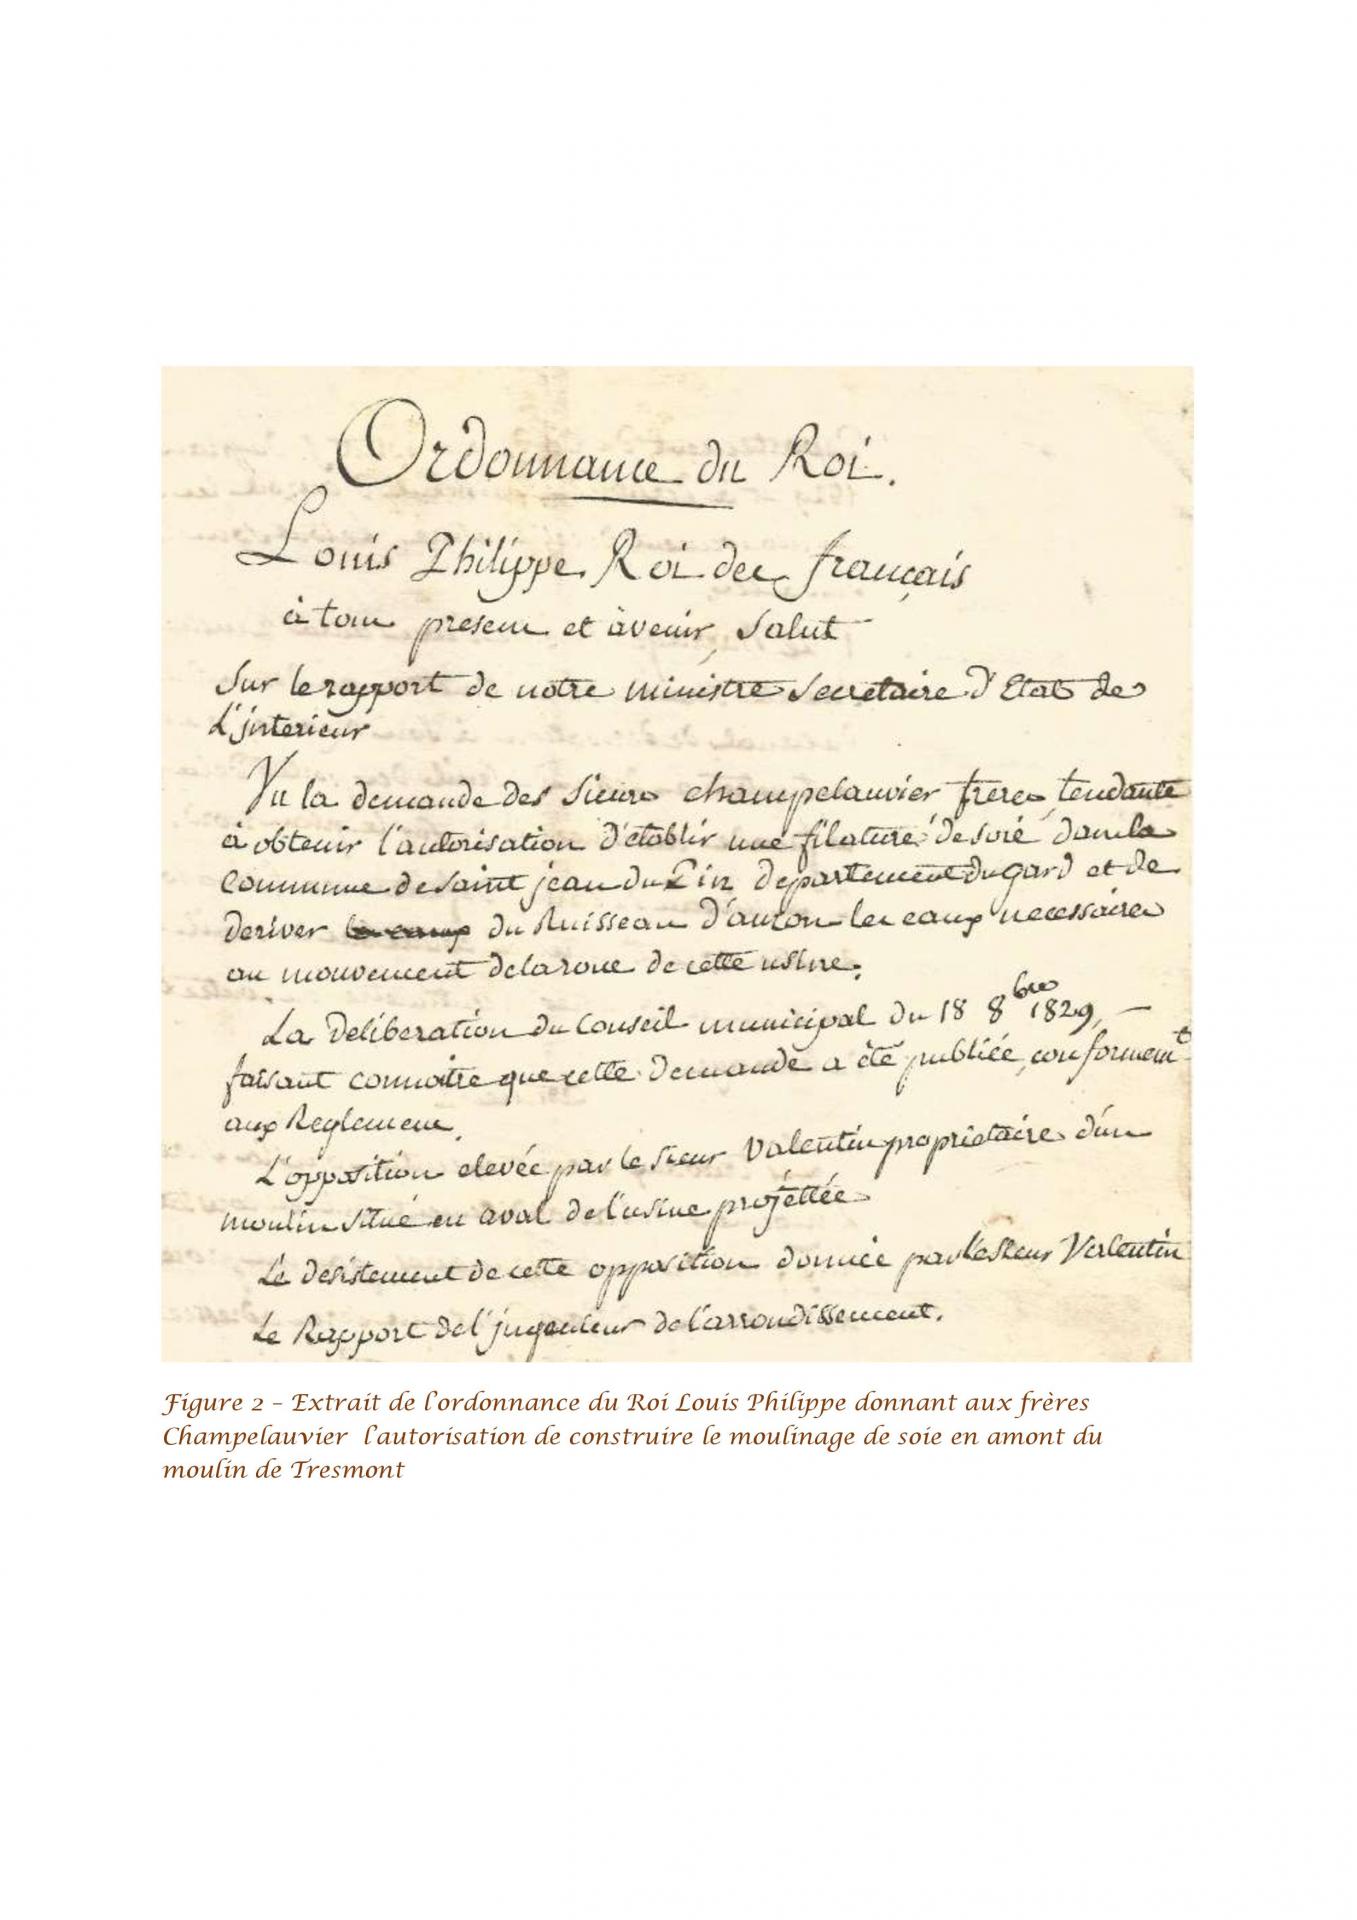 Ordonnance du Roi.
Louis Philippe Roi des français
à tous presens et àvenir, Salut
Sur le rapport de notre ministre Secretaire d'Etat de
L'jnterieur
Vu la demande des Sieurs champelauvier freres, tendante
à obtenir l'autorisation d'établir une filature de soie dans la
Commune de Saint jean du Pin departement du gard et de
deriver les eaux du Ruisseau d'auzon les eaux necessaires
au mouvement de la roue de cette usine.
La Deliberation du Conseil municipal du 18 8bre 1829, —
faisant connoitre que cette demande a été publiée, conforment
aux Reglemens.
L'opposition elevée par le sieur Valentin proprietaire d'un
moulin situé en aval de l'usine projettée
Le desistement de cette opposition donnée par le sieur Valentin
Le Rapport de l'jngenieur de l'arrondissement.
Figure 2 – Extrait de l'ordonnance du Roi Louis Philippe donnant aux frères
Champelauvier l'autorisation de construire le moulinage de soie en amont du
moulin de Tresmont